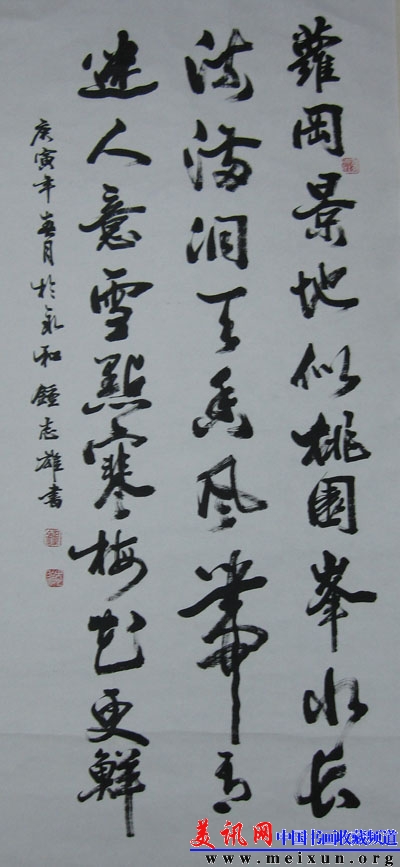 蘿岡景地似桃園峯水長
流洞天香風帶有
迷人意雪點寒梅花更鮮
庚寅年春月於永和鍾志雄書
美讯网 中国书画收藏频道
www.meixun.org